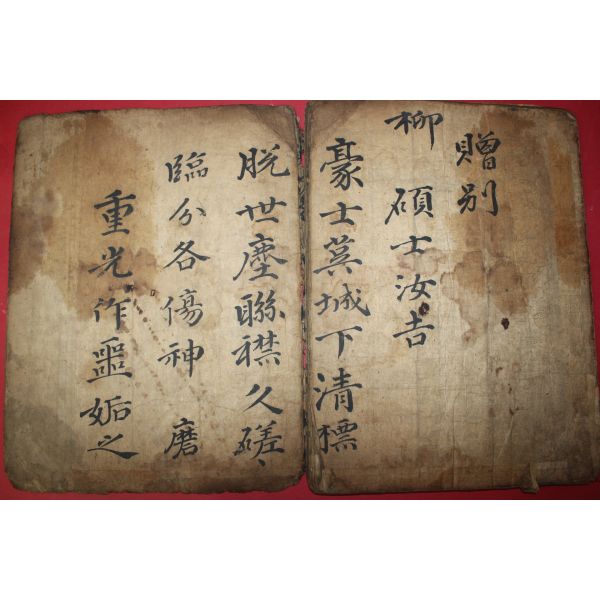 贈別
柳 碩士汝吉
豪士莫城下清標
脫世塵聯襟久磋〻
臨分各傷神 磨
重光作噩姤之